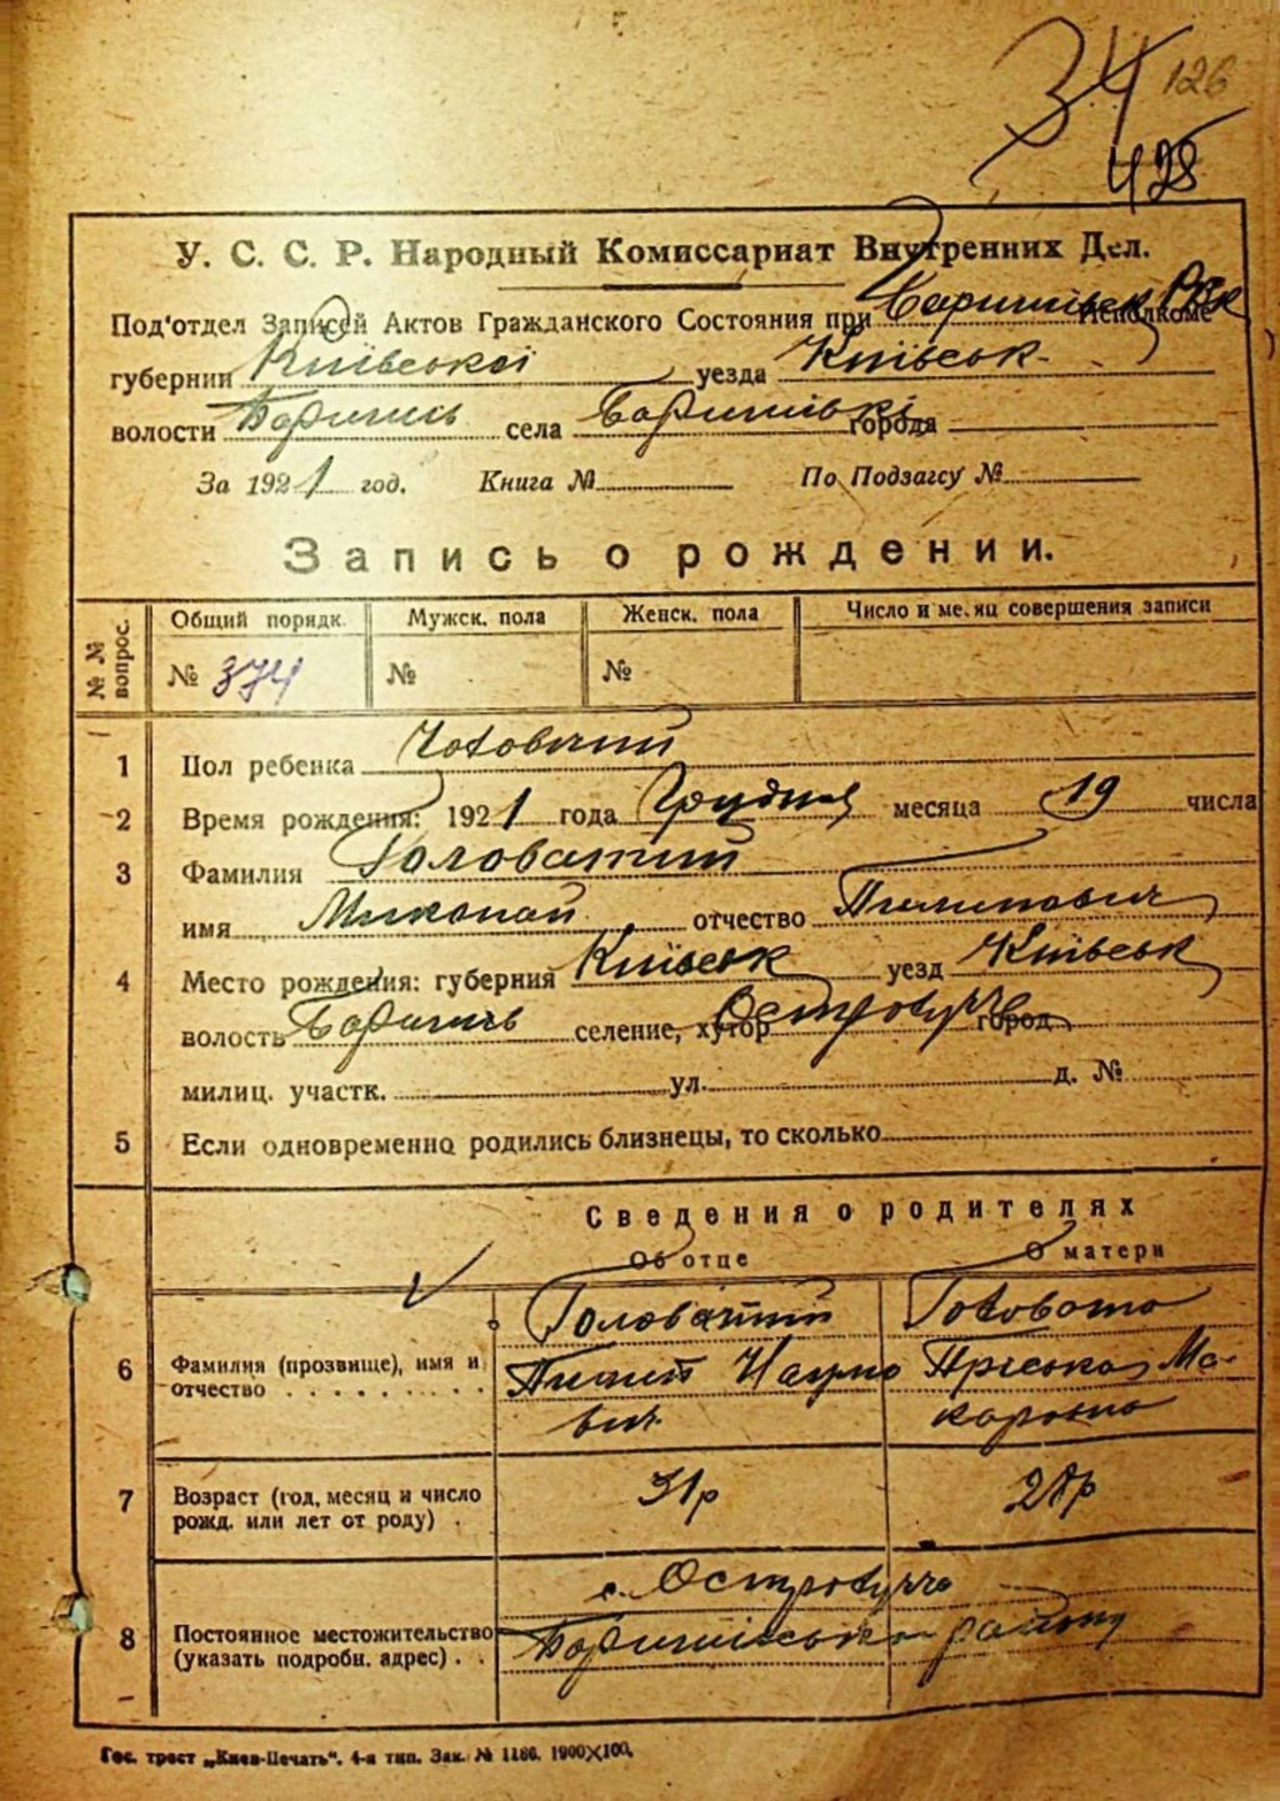 34 126
428
У. С. С. Р. Народный Комиссариат Внутренних Дел.
Под'отдел Записей Актов Гражданского Состояния при Баришівськ РВК Исполкоме
губернии Київської уезда Київськ
волости Баришів села Баришівкі города
За 1921 год. Книга № По Подзагсу №
Запись о рождении.
№ № вопрос. Общий порядк. Мужск. пола Женск. пола Число и месяц совершения записи
№ 374 № №
1 Пол ребенка Чоловічий
2 Время рождения: 1921 года Грудня месяца 19 числа
3 Фамилия Головатий
имя Миколай отчество Пилипович
4 Место рождения: губерния Київськ уезд Київськ
волость Баришів селение, хутор Остролуччє город
милиц. участк. ул. д. №
5 Если одновременно родились близнецы, то сколько
Сведения о родителях
Об отце О матери
Головатий Головата
6 Фамилия (прозвище), имя и отчество Пилип Наумович Пріська Макаровна
7 Возраст (год, месяц и число рожд. или лет от роду) 31р 28р
с. Остролуччє
8 Постоянное местожительство (указать подробн. адрес) Баришівського району
Гос. трест „Киев-Печать“. 4-я тип. Зак. № 1186. 1900×100.